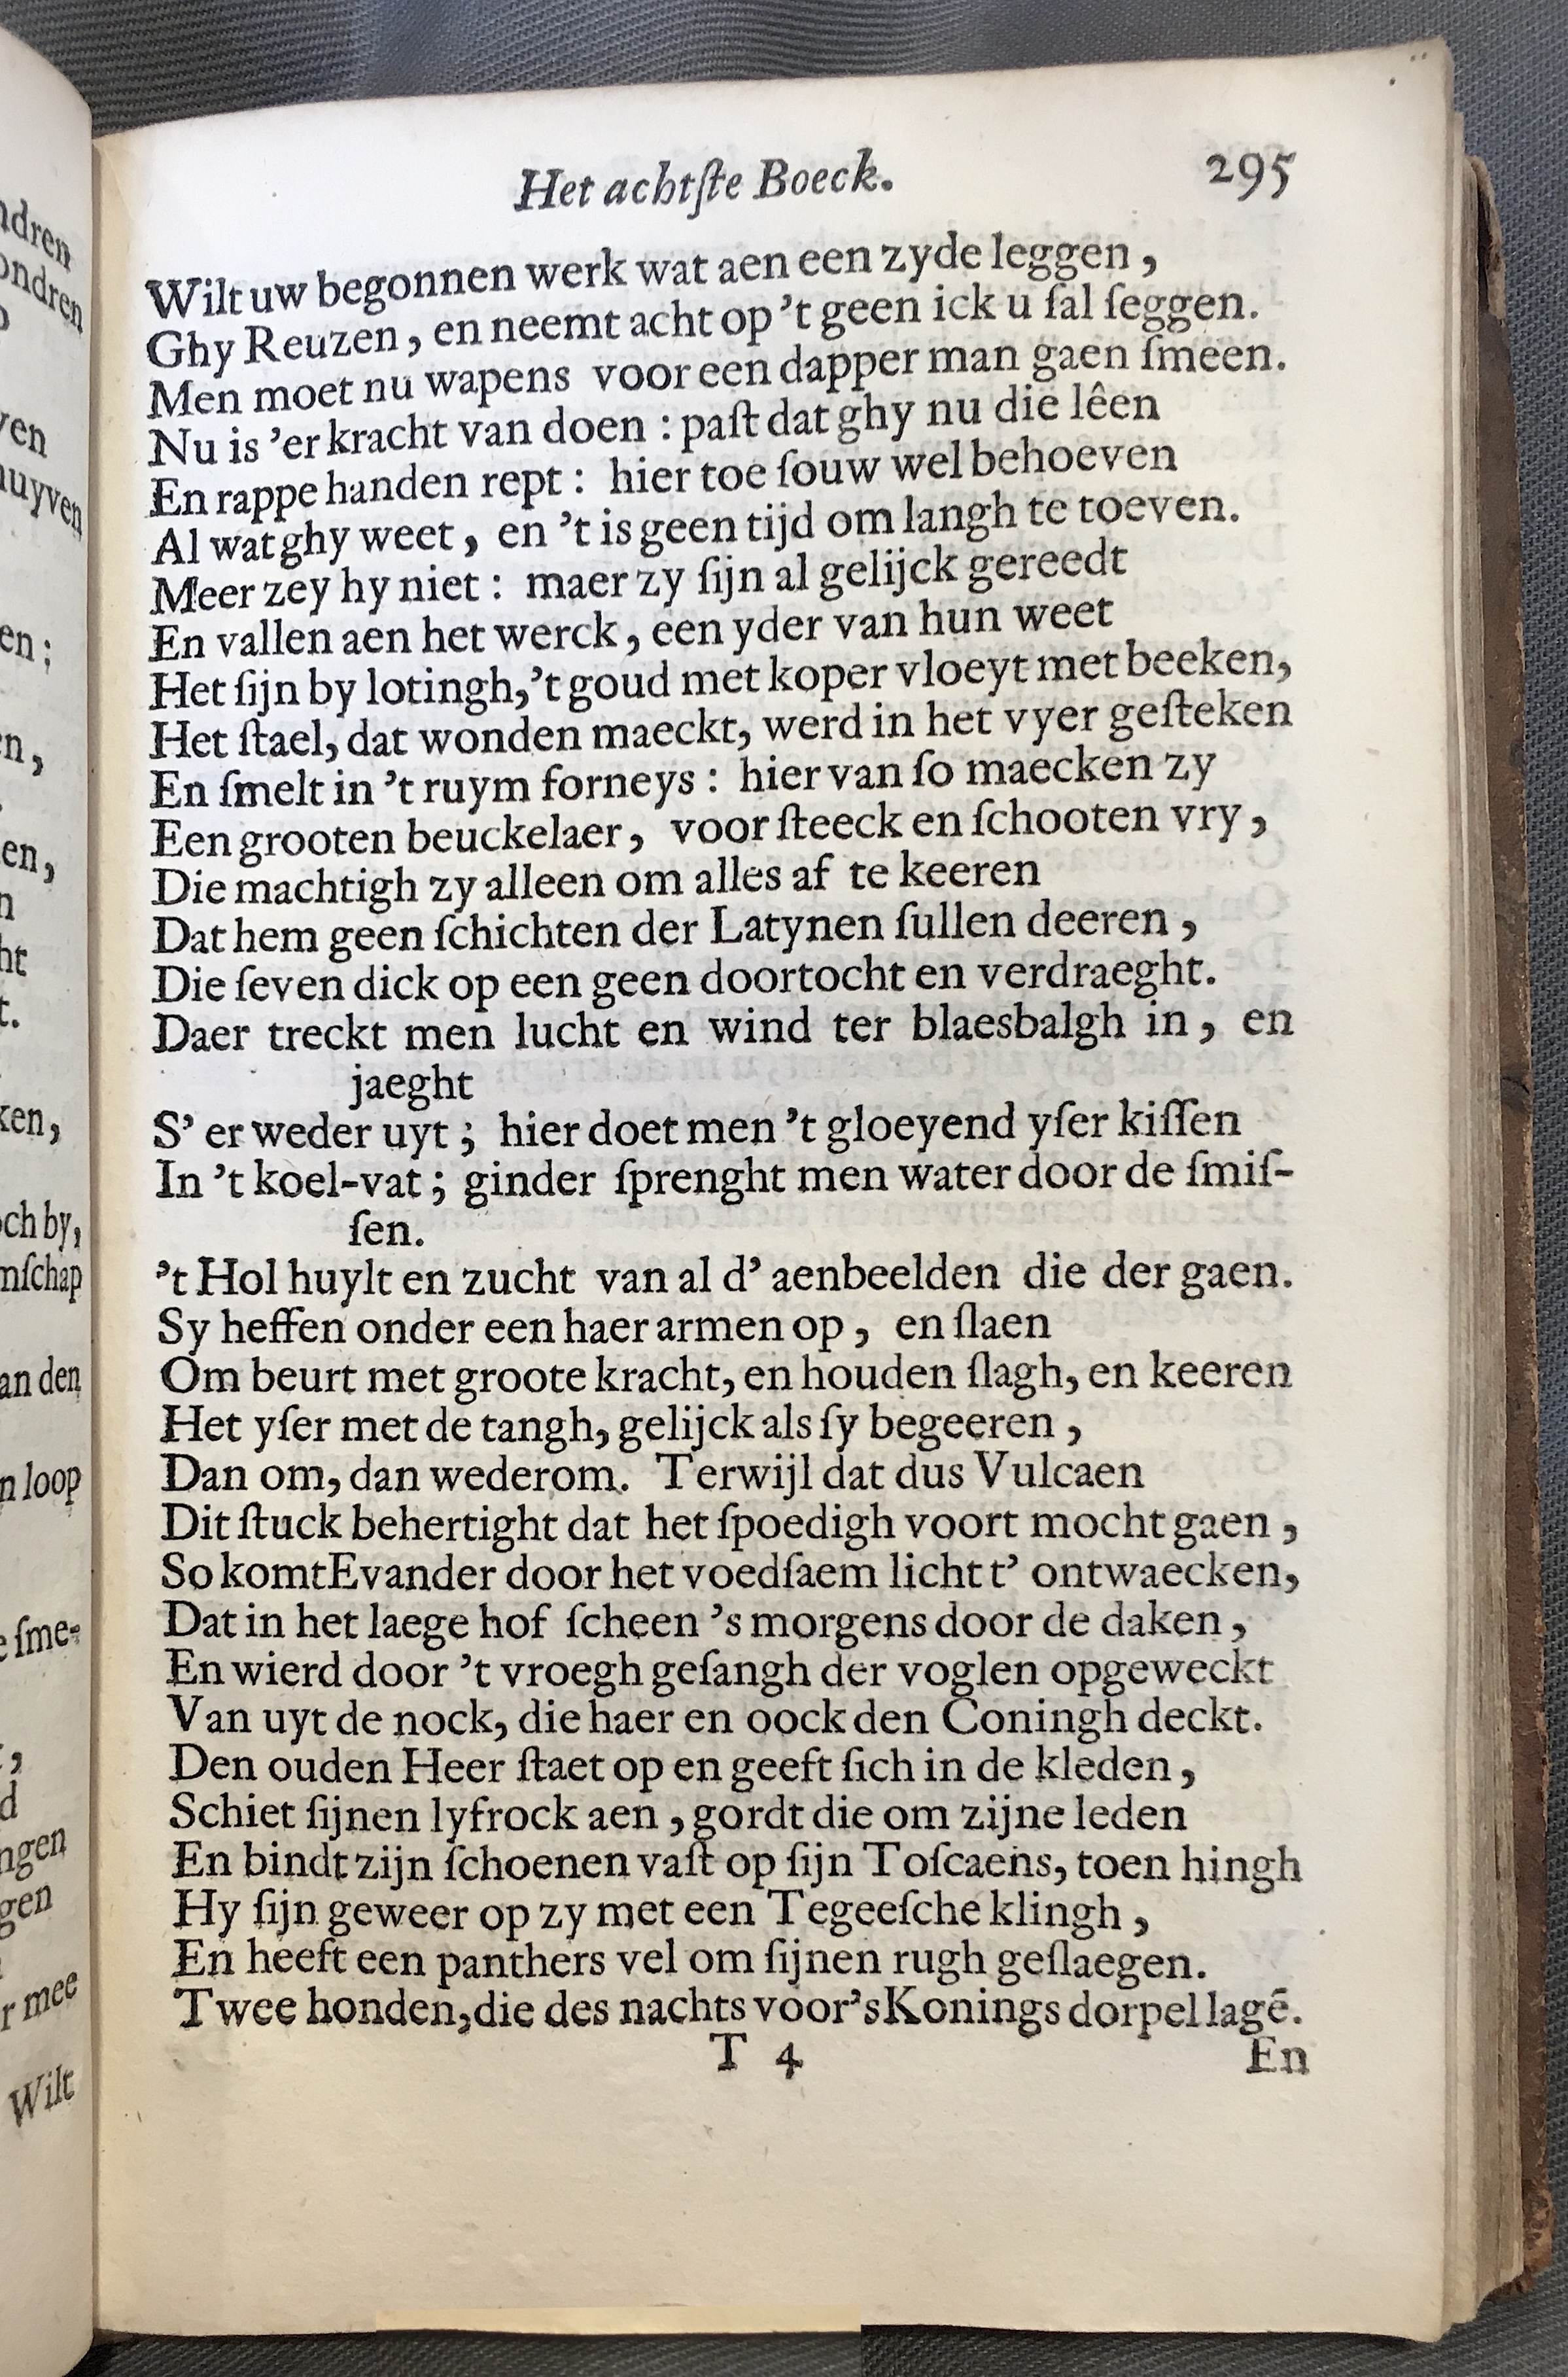 Het achtſte Boeck. 295
Wilt uw begonnen werk wat aen een zyde leggen,
Ghy Reuzen, en neemt acht op 't geen ick u ſal ſeggen.
Men moet nu wapens voor een dapper man gaen ſmeen.
Nu is 'er kracht van doen : paſt dat ghy nu die lêen
En rappe handen rept : hier toe ſouw wel behoeven
Al wat ghy weet, en 't is geen tijd om langh te toeven.
Meer zey hy niet : maer zy ſijn al gelijck gereedt
En vallen aen het werck, een yder van hun weet
Het ſijn by lotingh, 't goud met koper vloeyt met beeken,
Het ſtael, dat wonden maeckt, werd in het vyer geſteken
En ſmelt in 't ruym forneys : hier van ſo maecken zy
Een grooten beuckelaer, voor ſteeck en ſchooten vry,
Die machtigh zy alleen om alles af te keeren
Dat hem geen ſchichten der Latynen ſullen deeren,
Die ſeven dick op een geen doortocht en verdraeght.
Daer treckt men lucht en wind ter blaesbalgh in, en
jaeght
S' er weder uyt ; hier doet men 't gloeyend yſer kiſſen
In 't koel-vat ; ginder ſprenght men water door de ſmiſ-
ſen.
't Hol huylt en zucht van al d' aenbeelden die der gaen.
Sy heffen onder een haer armen op, en ſlaen
Om beurt met groote kracht, en houden ſlagh, en keeren
Het yſer met de tangh, gelijck als ſy begeeren,
Dan om, dan wederom. Terwijl dat dus Vulcaen
Dit ſtuck behertight dat het ſpoedigh voort mocht gaen,
So komt Evander door het voedſaem licht t' ontwaecken,
Dat in het laege hof ſcheen 's morgens door de daken,
En wierd door 't vroegh geſangh der voglen opgeweckt
Van uyt de nock, die haer en oock den Coningh deckt.
Den ouden Heer ſtaet op en geeft ſich in de kleden,
Schiet ſijnen lyfrock aen, gordt die om zijne leden
En bindt zijn ſchoenen vaſt op ſijn Toſcaens, toen hingh
Hy ſijn geweer op zy met een Tegeeſche klingh,
En heeft een panthers vel om ſijnen rugh geſlaegen.
Twee honden, die des nachts voor's Konings dorpel lagē.
T 4 En
ndren
ondren
ven
huyven
en ;
en,
en,
ht
t.
ken,
och by,
mſchap
an den
n loop
e ſme-
ngen
gen
r mee
Wilt